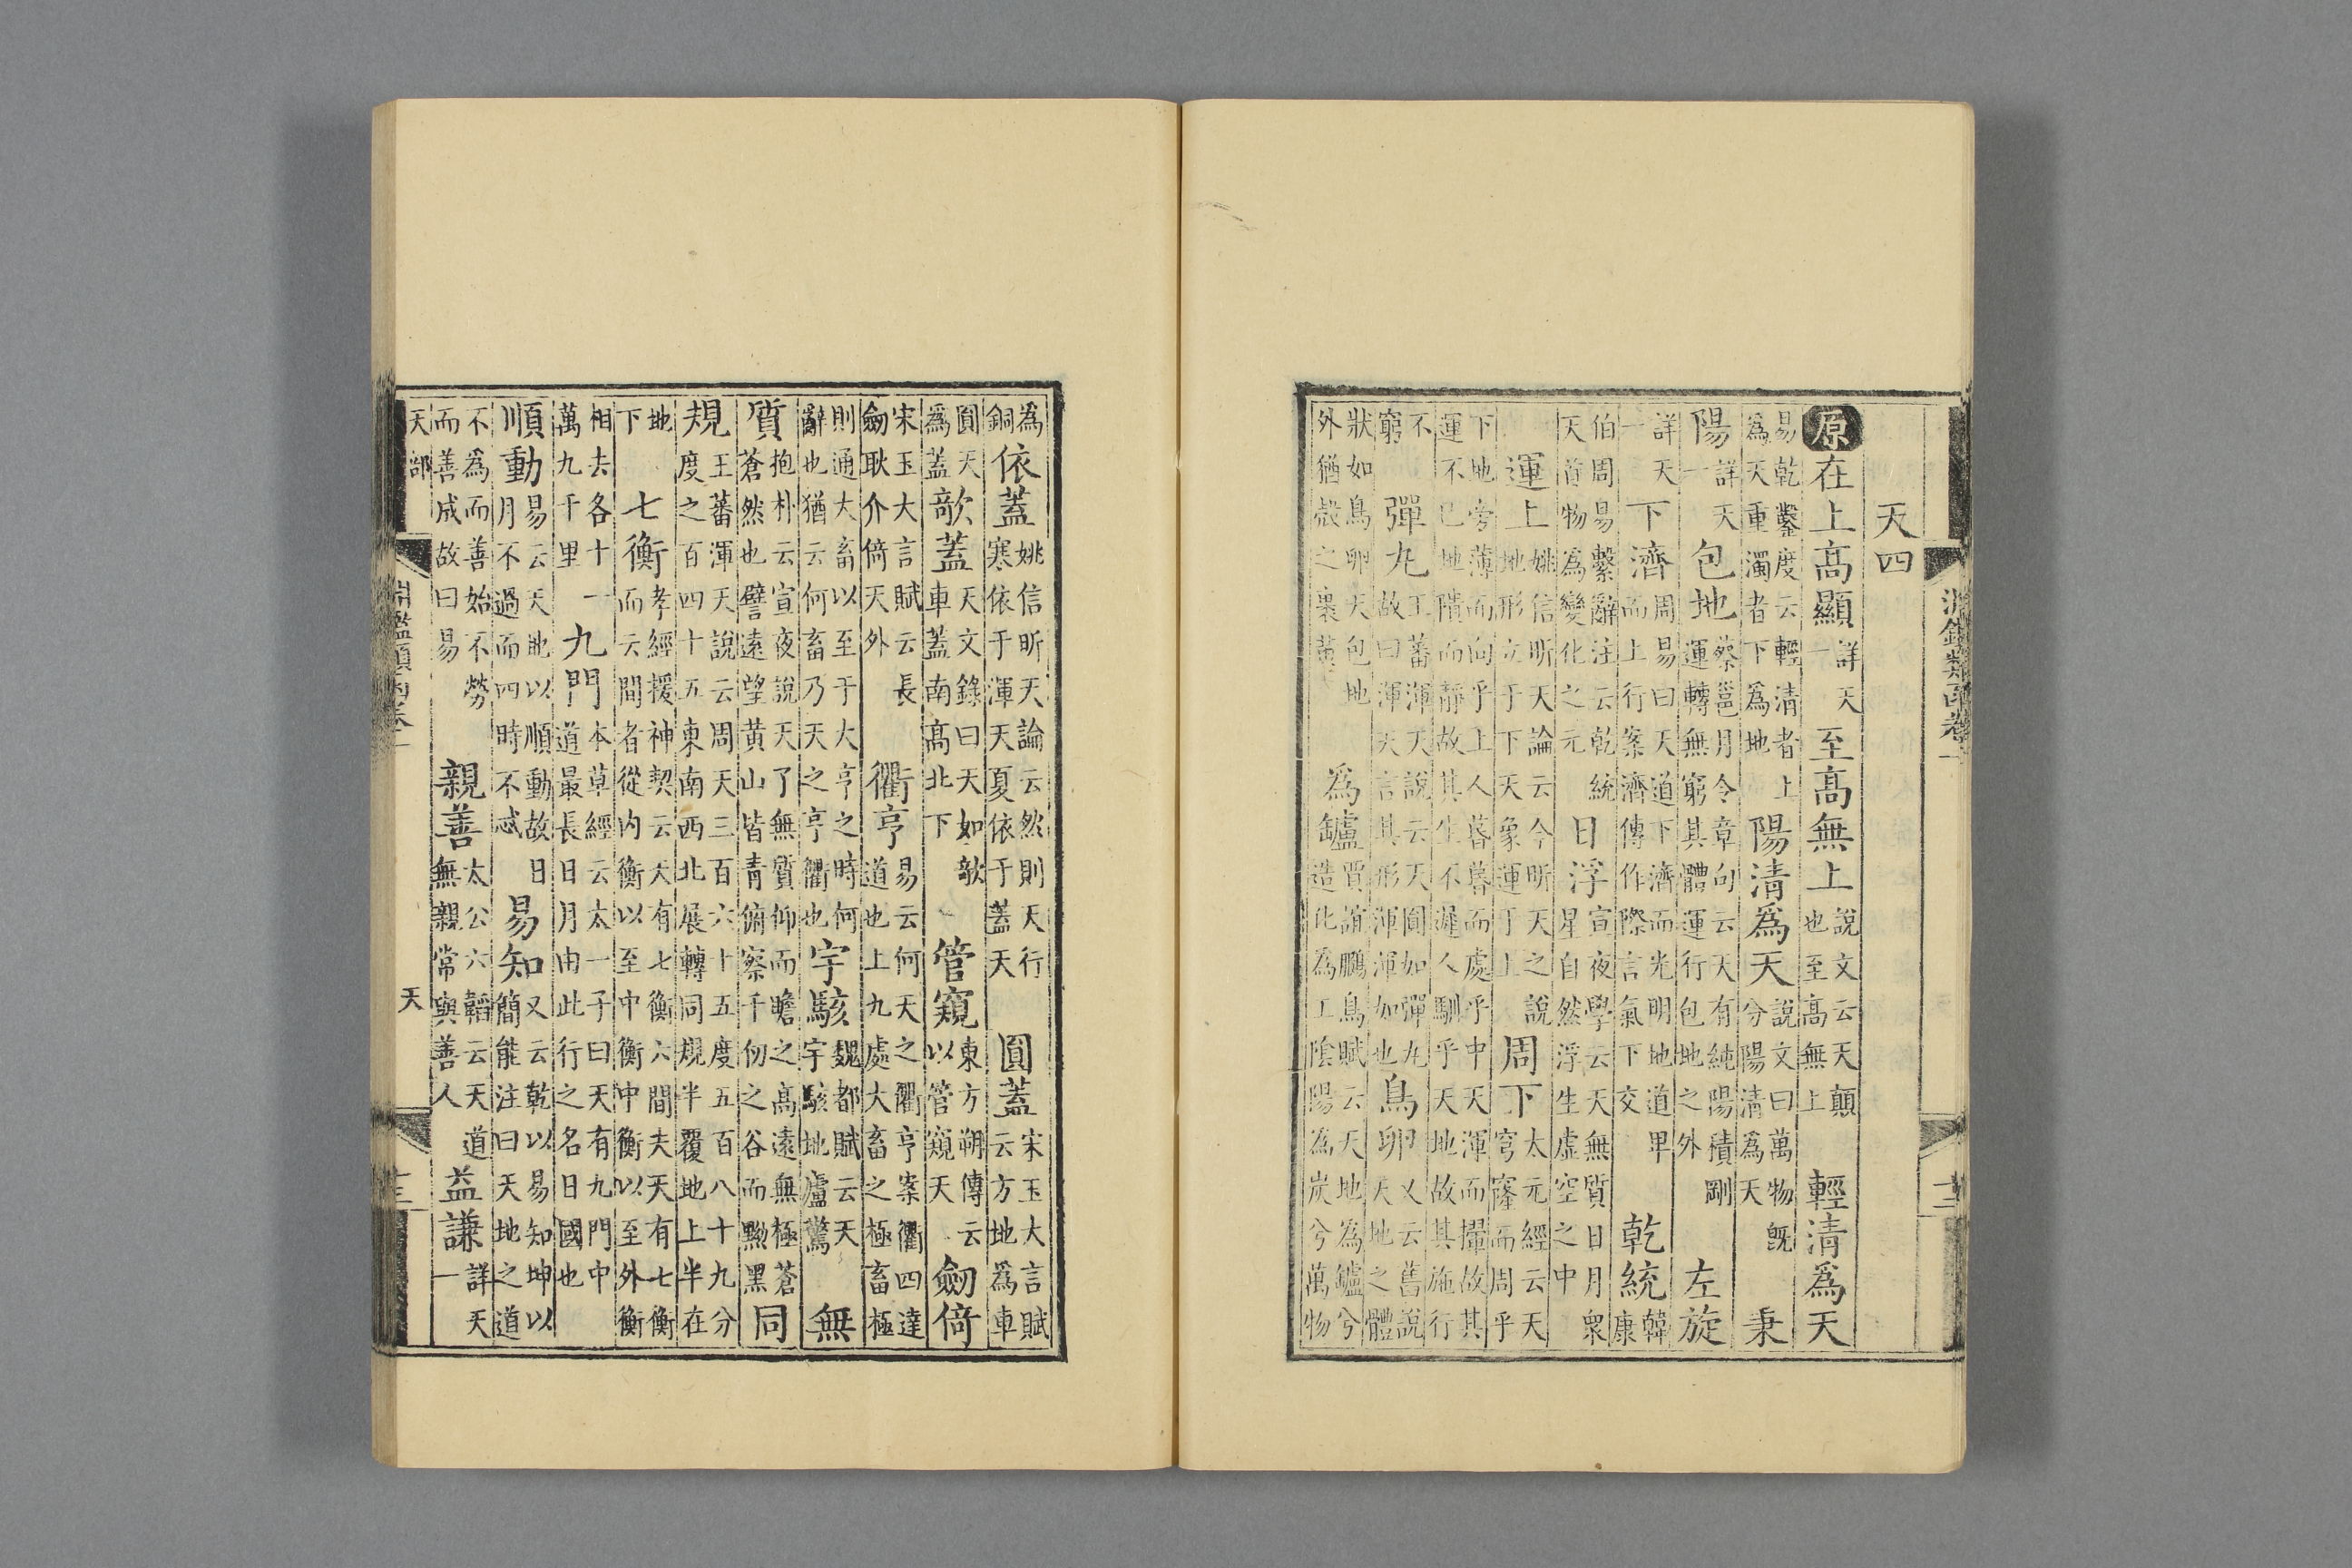 淵鑑類函卷一 十二
天四
原在上高顯詳天一至高無上說文云天顛也至高無上輕清爲天
易乾鑿度云輕清者上爲天重濁者下爲地陽清爲天說文曰萬物旣分陽清爲天秉
陽詳天一包地蔡邕月令章句云天有純陽積剛運轉無窮其體運行包地之外左旋
詳天一下濟周易曰天道下濟而光明地道卑而上行案濟傳作際言氣下交乾統韓康
伯周易繫辭注云乾統天首物為變化之元日浮宣夜學云天無質日月衆星自然浮生虛空之中
運上姚信昕天論云今昕天之說地形立于下天象運于上周下太元經云天穹窿而周乎
下地旁薄而向乎上人蕃蕃而處乎中天渾而攆故其運不已地隤而靜故其生不遲人馴乎天地故其施行
不窮彈丸王蕃渾天說云天圓如彈丸故曰渾天言其形渾渾如也鳥卵又云舊說天地之體
狀如鳥卵天包地外猶殼之裹黃為鑪賈誼鵩鳥賦云天地為鑪兮造化為工陰陽為炭兮萬物
為銅依蓋姚信昕天論云然則天行寒依于渾天夏依于蓋天圓蓋宋玉大言賦云方地為車
圓天為蓋欹蓋天文錄曰天如欹車蓋南高北下管窺東方朔傳云以管窺天劒倚
宋玉大言賦云長劒耿介倚天外衢亨易云何天之衢亨案衢四達道也上九處大畜之極畜極
則通大畜以至于大亨之時何辭也猶云何畜乃天之亨衢也宇駭魏都賦云天宇駭地廬驚無
質抱朴云宣夜說天了無質仰而瞻之高遠無極蒼蒼然也譬遠望黃山皆青俯察千仞之谷而黝黑同
規王蕃渾天說云周天三百六十五度五百八十九分度之百四十五東南西北展轉同規半覆地上半在
地下七衡孝經援神契云天有七衡六間夫天有七衡而云間者從內衡以至中衡中衡以至外衡
相去各十一萬九千里九門本草經云太一子曰天有九門中道最長日月由此行之名曰國也
順動易云天地以順動故日月不過而四時不忒易知又云乾以易知坤以簡能注曰天地之道
不為而善始不勞而善成故曰易親善太公六韜云天道無親常與善人益謙詳天一
天部 淵鑑類函卷一 天 十三